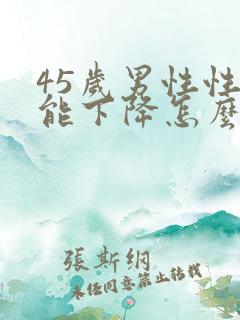 45歲男性性
能下降怎麼
張斯綱
未任同意禁止轉載